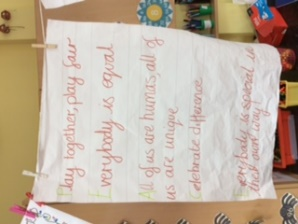 Play together, play fair
Everybody is equal
All of us are humas, all of
us are unique
Celebrate difference
Everybody is special in
their own way!